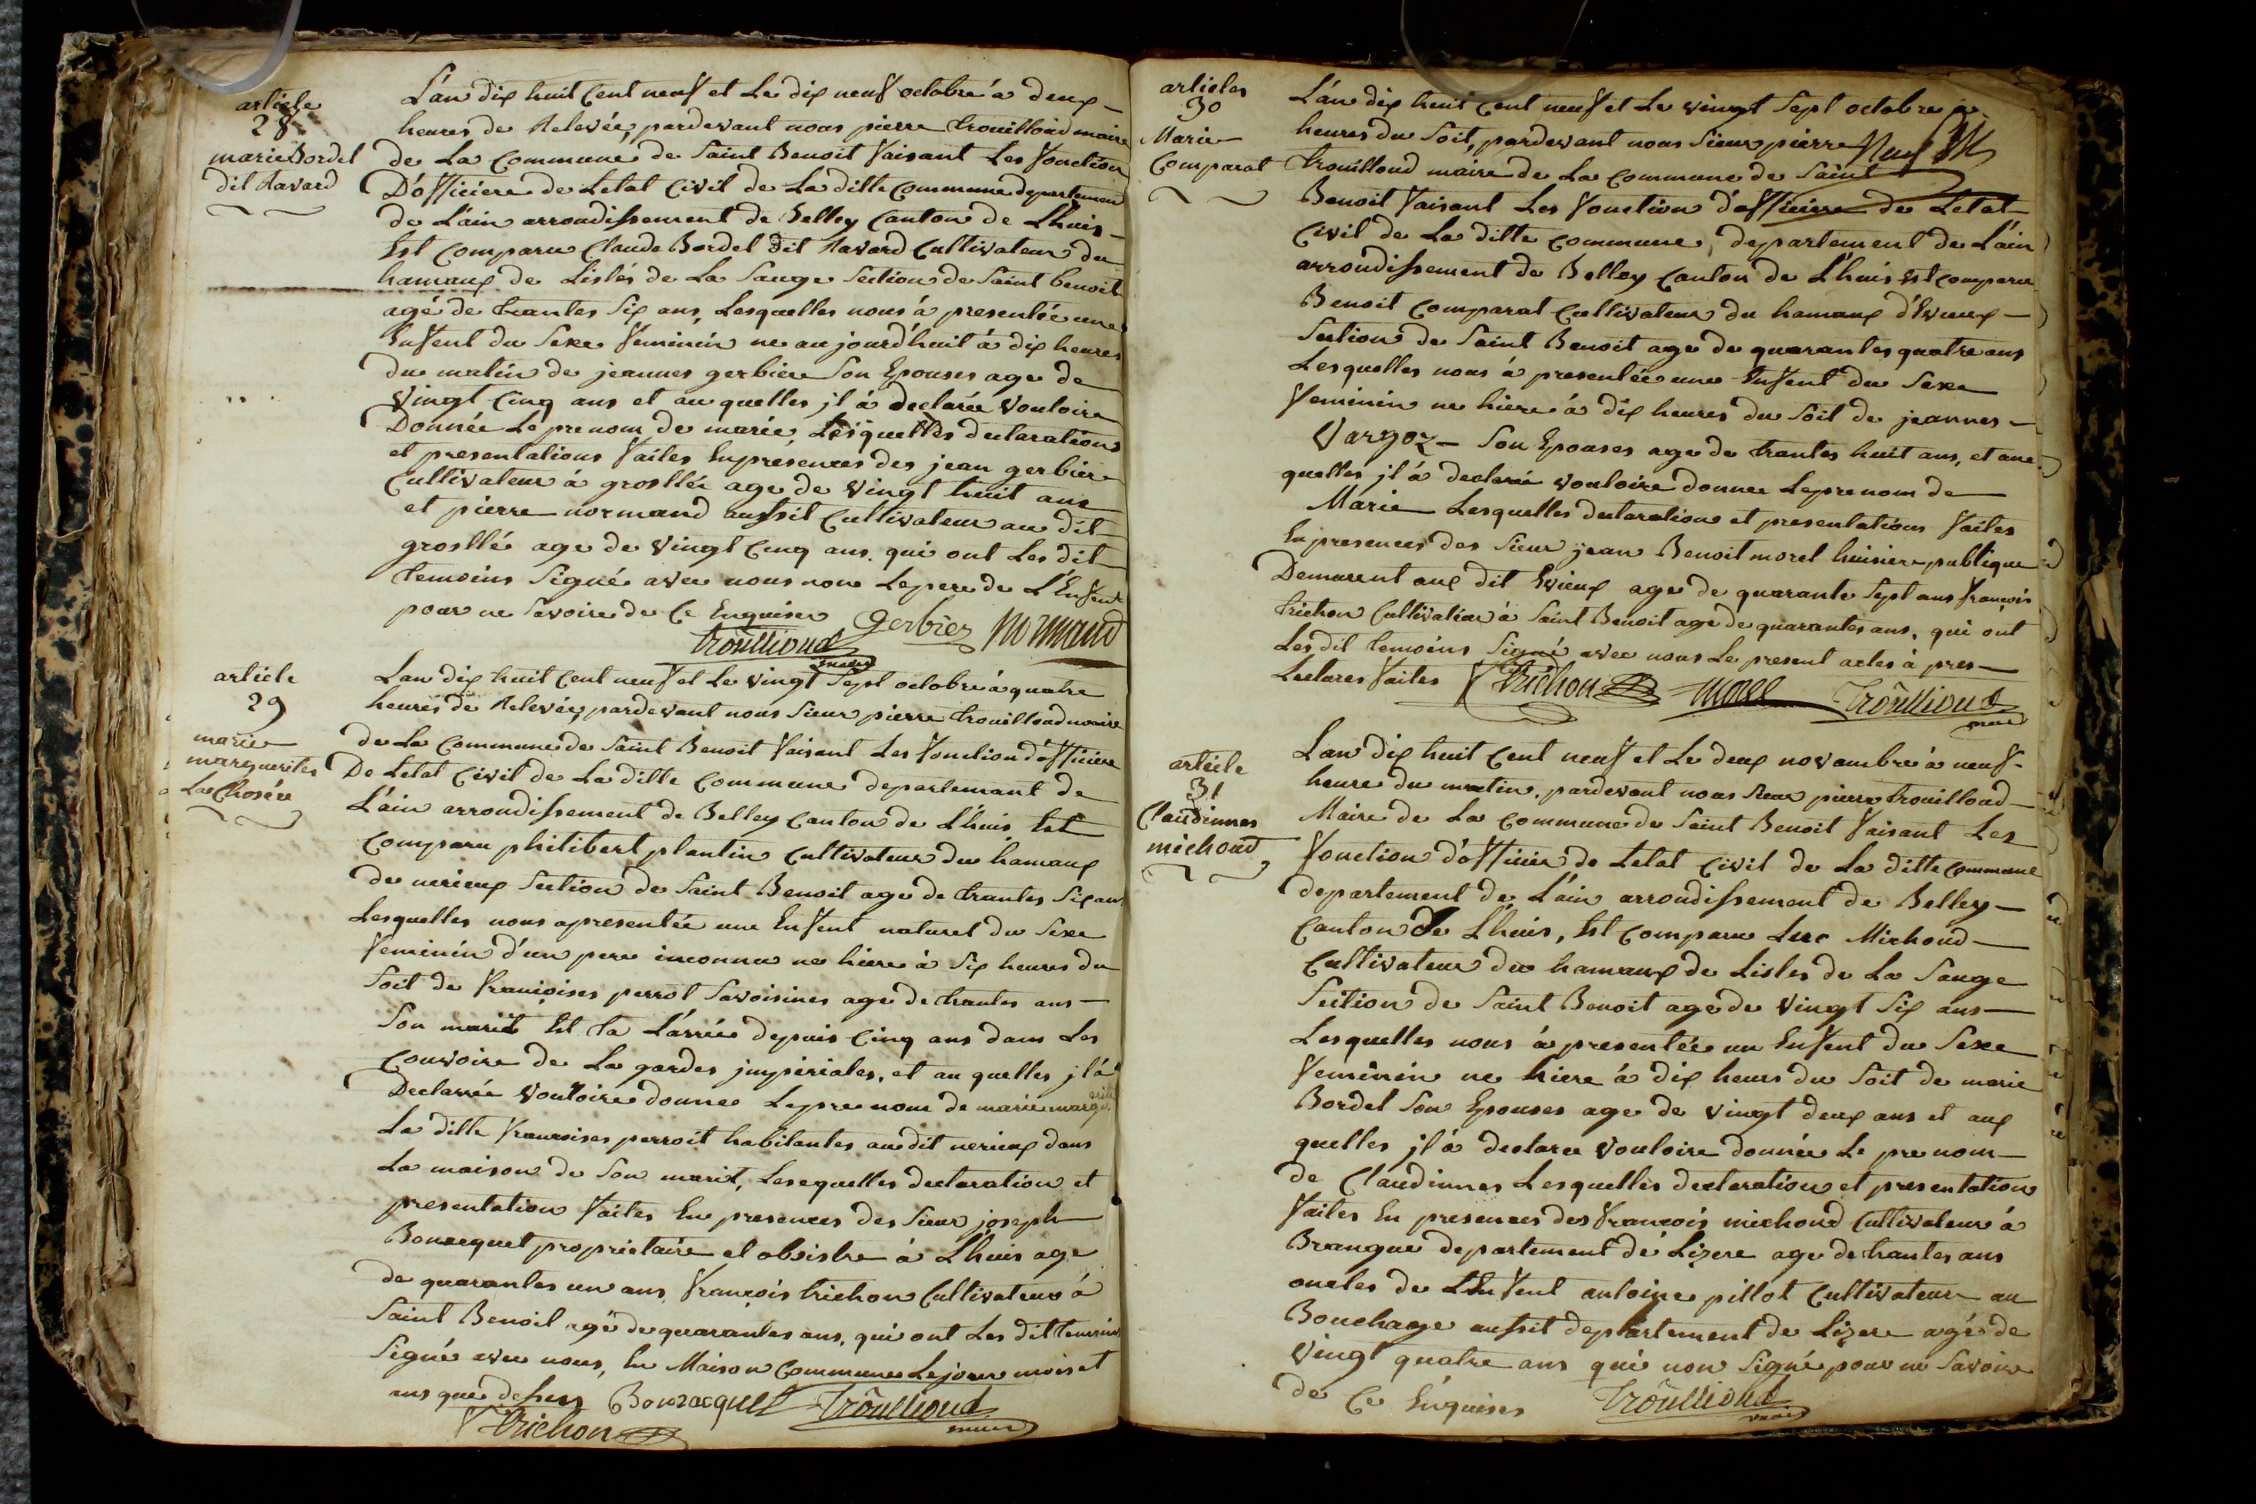 article
28
marie Bordel
dit Ravard
L'an dix huit Cent neuf et Le dix neuf octobre à deux
heures de Relevée, pardevant nous pierre trouilloud maire
de La Commune de Saint Benoit faisant Les fonction
D'officiere de Letat Civil de La ditte Commune departement
de L'ain arrondissement de Belley Canton de Lhuis
Est Comparu Claude Bordel dit Ravard Cultivateur du
hamaux de Lisles de La Sauge Section de Saint benoit
agé de trantes Six ans, Lesquelles nous à presentée une
Enfent du Sexe feminin ne aujourd'huit à dix heures
du matin de jeannes gerbier Son Epouses age de
Vingt Cinq ans et au quelles jl à declarée Vouloire
Donnée Le prenom de marie, Lesquelles declarations
et presentations faites En presences des jean gerbier
Cultivateur à grosllée age de Vingt huit ans
et pierre normand aussit Cultivateur au dit
grosllé age de Vingt Cinq ans. qui ont Les dit
temoins Signé avec nous non Le pere de L'Enfent
pour ne Savoire de Ce Enquiser gerbier normand
trouilloud
maire
article
29
marie
marguerites
La Chosée
Lan dix huit Cent neuf et Le Vingt Sept octobre à quatre
heures de Relevée, pardevant nous Sieur pierre trouilloud maire
de La Commune de Saint Benoit faisant Les fonction d'officiere
De Letat Civil de La ditte Commune departemant de
L'ain arrondissement de Belley Canton de Lhuis Est
Comparu philibert plantin Cultivateur du hamaux
de nerieux Section de Saint Benoit age de trantes Six ans
Lesquelles nous apresentée une Enfent naturel du Sexe
feminin d'un pere inconnu ne hiere à Six heures du
Soit de françoises perrot Savoisines age de trantes ans
Son marit Est La Larrée depuis Cinq ans dans Les
Couvoire de La gardes jmperiales, et au quelles jl à
Declarée Vouloire donnee Le prenom de marie margrite
La ditte françoises perroit habitantes audit nerieux dans
La maison de Son marit, Lesequelles declaration et
presentation faites En presences des Sieur joseph
Bonacquet proprietaire et obsistre à Lhuis age
de quarantes un ans, françois trichon Cultivateur à
Saint Benoit agé de quarantes ans, qui ont Les dit temoins
Signé avec nous, En Maison Commune Le jour mois et
ans que dessus Bonracquet trouilloud
maire
ftrichon
articles
30
Marie
Comparat
L'an dix huit Cent neuf et Le vingt Sept octobre à
heures du Soit, pardevant nous Sieur pierre
trouilloud maire de La Commune de Saint
Benoit faisant Les fonction d'officiere de Letat
Civil de La ditte Commune, departement de L'ain
arrondissement de Belley Canton de Lhuis Est Comparu
Benoit Comparat Cultivateur du hamaux d'Evieux
Section de Saint Benoit age de quarantes quatre ans
Lesquelles nous à presentée une Enfent du Sexe
feminin ne hiere à dix heures du Soit de jeannes
Vargoz Son Epouses age de trantes huit ans, et aue
quelles jl à declarée vouloire donnee Le prenom de
Marie Lesquelles declaration et presentations faites
En presences des Sieur jean Benoit morel huisiere publique
Demeurent aux dit Evieux age de quarante Sept ans françois
trichon Cultivateur à Saint Benoit age de quarantes ans, qui ont
Les dit temoins Signé avec nous Le present actes à pres
Lectares faites ftrichon morel trouilloud
maire
article
31
Claudinnes
michoud
Lan dix huit Cent neuf et Le deux novambre à neuf
heure du matin, pardevant nous Sieur pierre trouilloud
Maire de La Commune de Saint Benoit faisant Les
fonction d'officier de Letat Civil de La ditte Commune
departement de L'ain arrondissement de Belley
Canton de Lhuis, Est Comparu Luc Michoud
Cultivateur du hamaux de Lisles de La Sauge
Section de Saint Benoit age de Vingt Six ans
Lesquelles nous à presentée un Enfent du Sexe
feminin ne hiere à dix heurs du Soit de marie
Bordel Son Epouses age de vingt deux ans et aux
quelles jl à declaree Vouloire donnée Le prenom
de Claudinnes Lesquelles declaration et presentation
faites En presences des françois michoud Cultivateur à
Brangue departement de Lizere age de trantes ans
oncles de LEnfent antoine pillot Cultivateur au
Bouchage aussit departement de Lizere agé de
Vingt quatre ans qui non Signé pour ne Savoire
de Ce Enquises trouilloud
maire